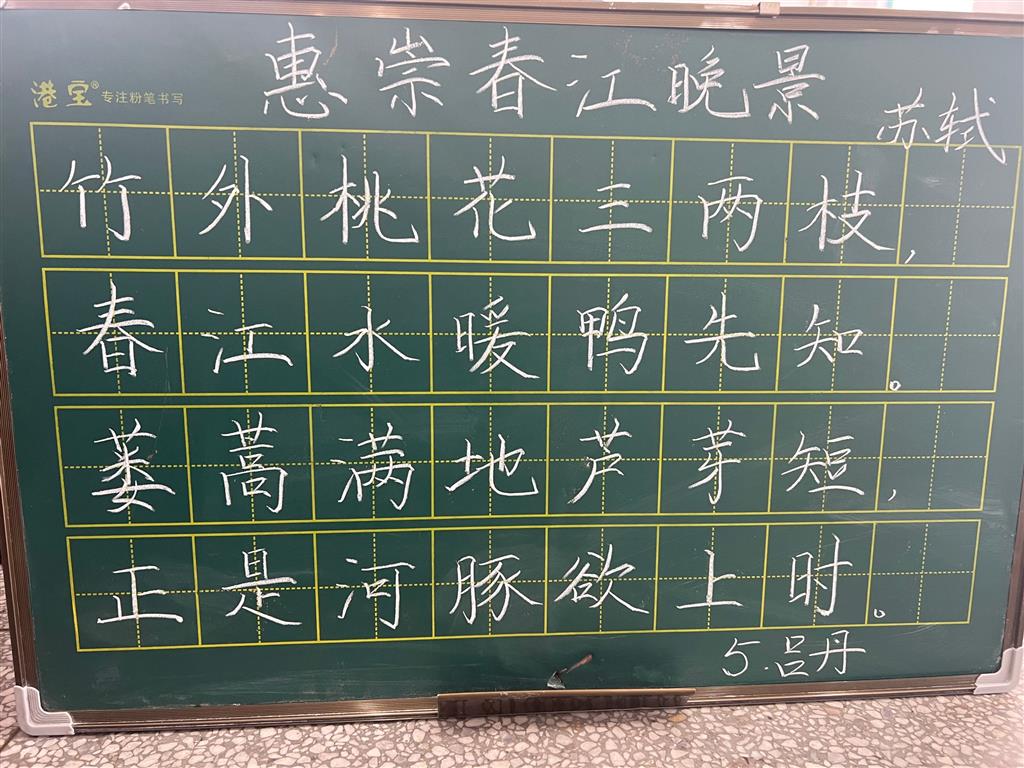 惠崇春江晚景
港宝® 专注粉笔书写
苏轼
竹外桃花三两枝,
春江水暖鸭先知。
蒌蒿满地芦芽短,
正是河豚欲上时。
5.吕丹